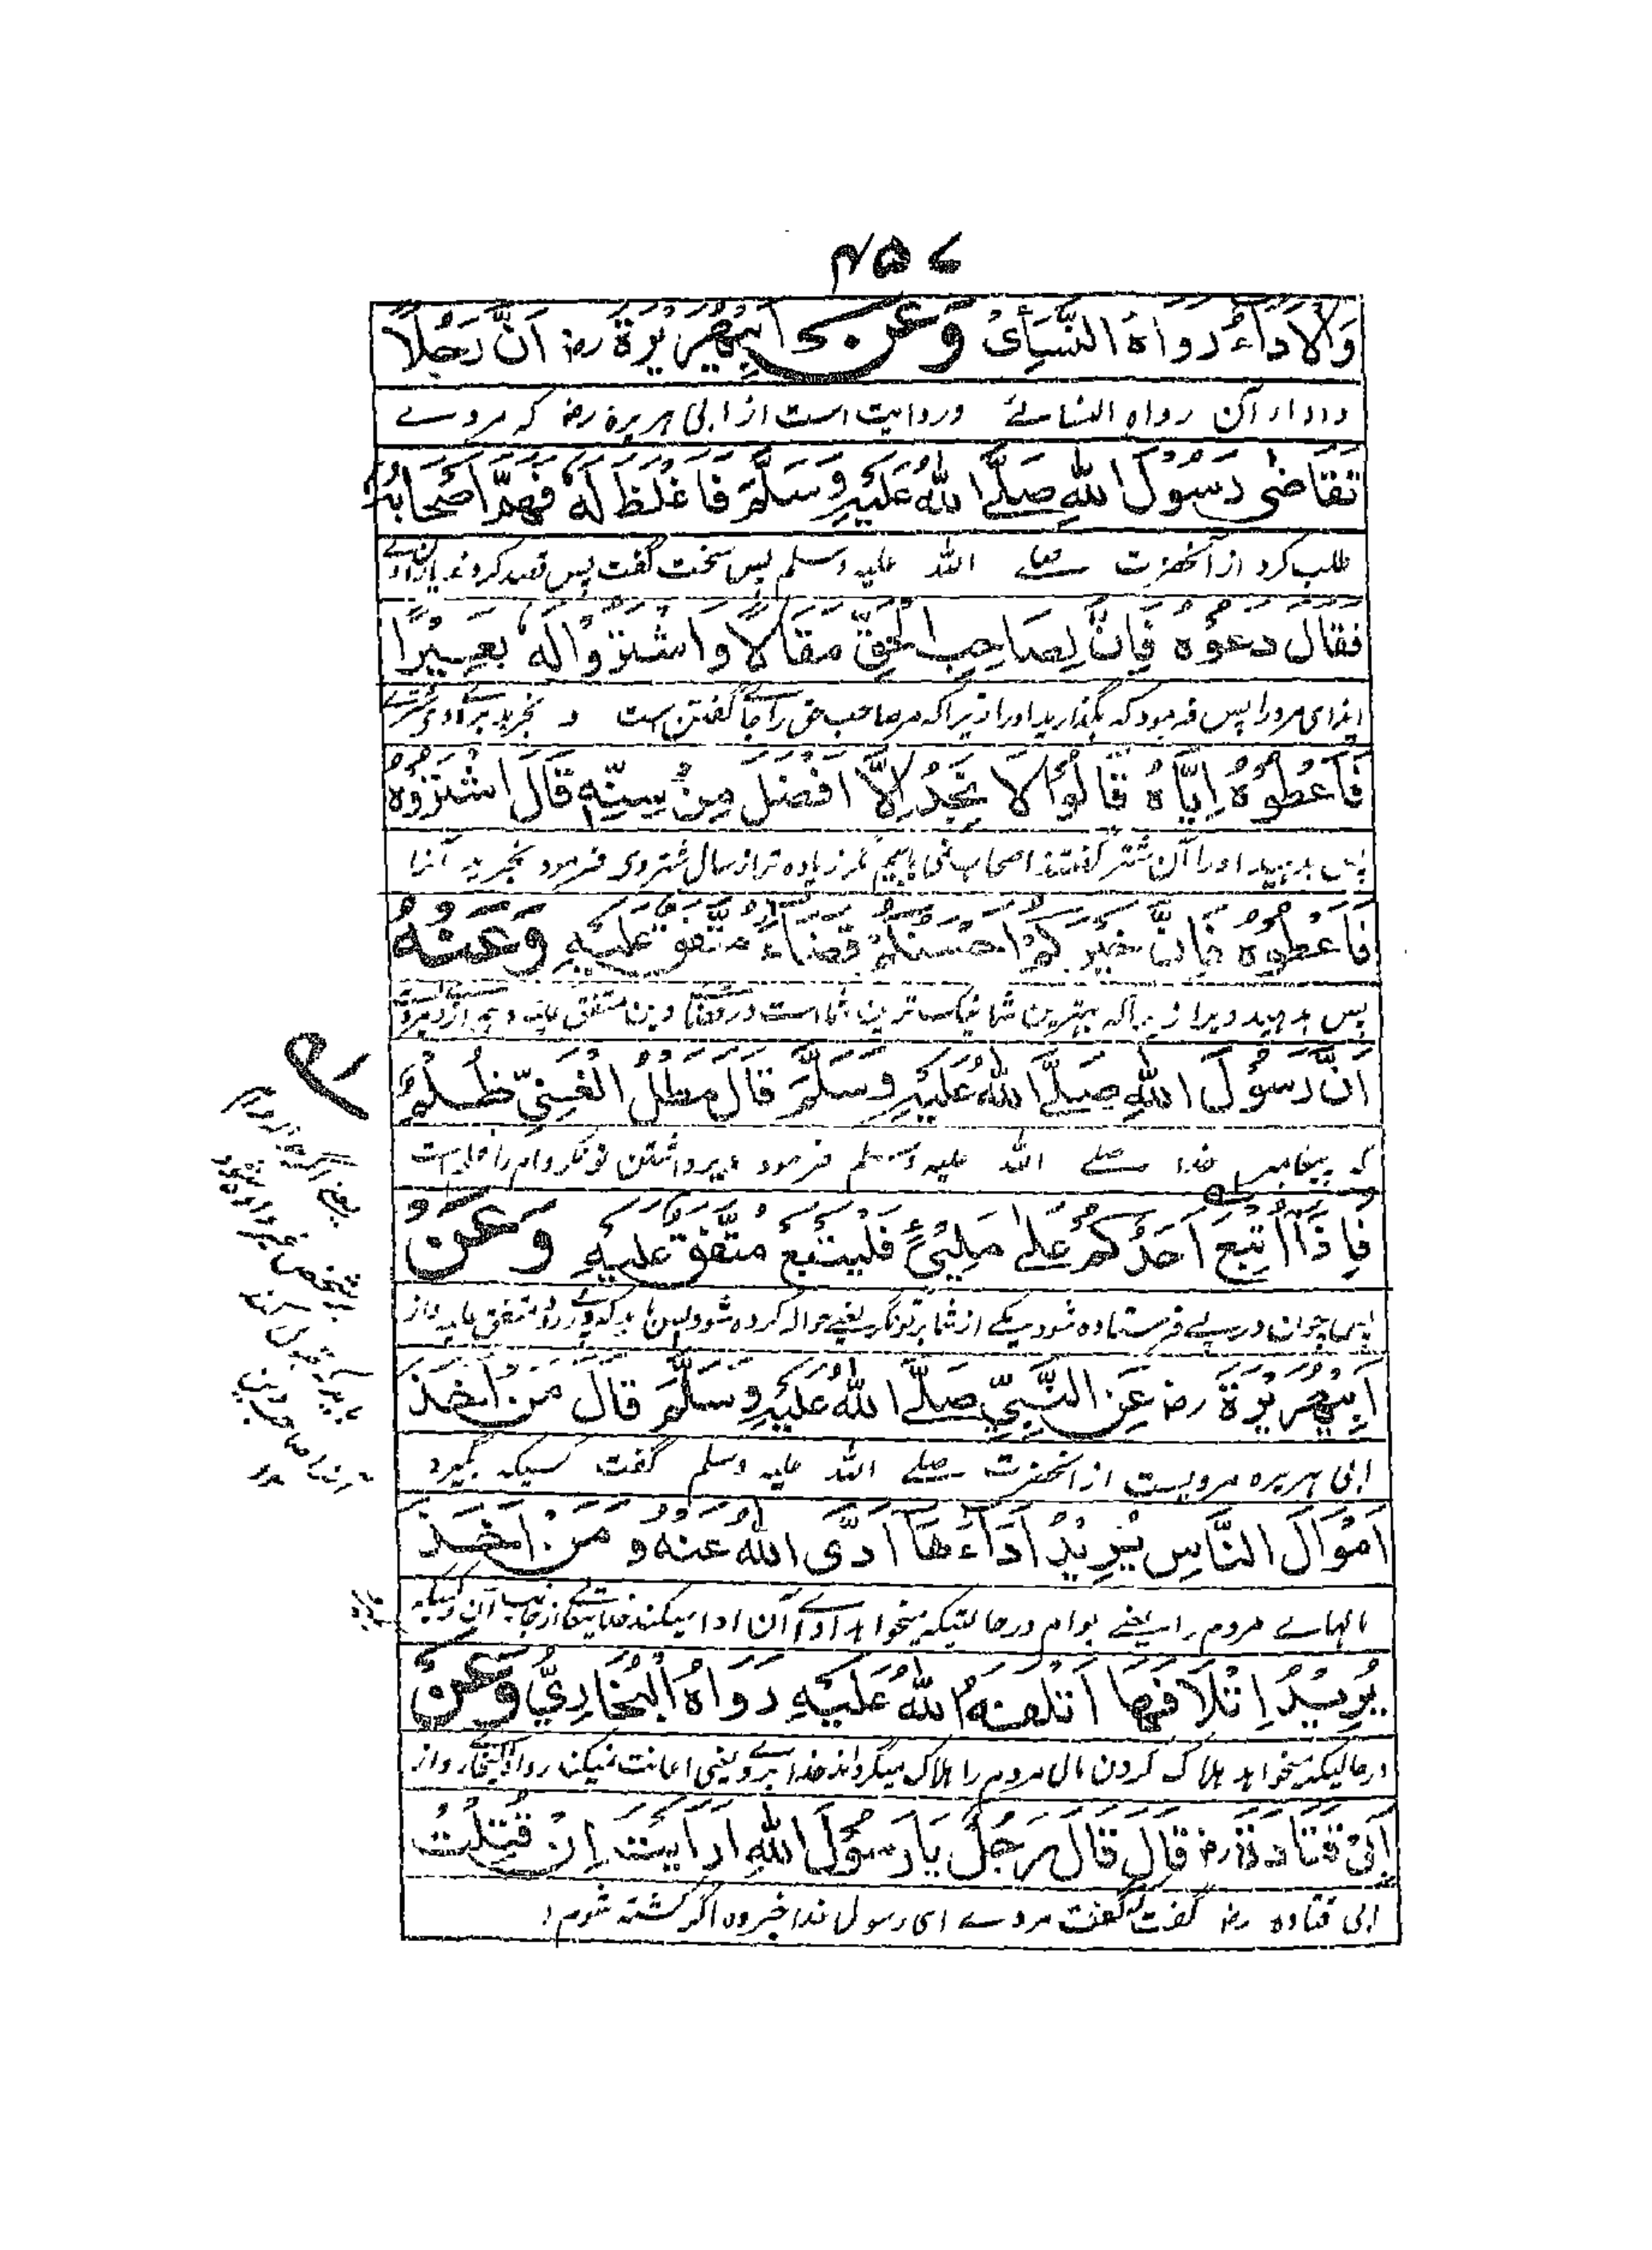 ۴۵۷
وَالْاَدَاءُ رَوَاهُ النَّسَائِیُ وَعَنْ اَبِیْهُرَيْرَةَ رض اَنَّ رَجُلًا
و ادار آن رواه النسائے وروایت است از ابی هریره رض که مردے
تَقَاضٰى رَسُوْلَ اللهِ صَلَّے اللهُ عَلَيْهِ وَسَلَّمَ فَاَغْلَظَ لَهٗ فَهَمَّ اَصْحَابُهٗ
طلب کرد از آنحضرت صلے الله علیه وسلم پس سخت گفت پس قصد کردند
فَقَالَ دَعُوْهُ فَاِنَّ لِصَاحِبِ الْحَقِّ مَقَالًا وَاشْتَرُوْا لَهٗ بَعِيْرًا
ایذای مرورا پس فرمود که بگذارید اورا زیراکه مر صاحب حق را جائے گفتن است و بخرید برائے وی شترے
فَاَعْطُوْهُ اِيَّاهُ قَالُوْا لَا نَجِدُ اِلَّا اَفْضَلَ مِنْ سِنِّهٖ قَالَ اشْتَرُوْهُ
پس بدهید اورا آن شتر گفتند اصحاب نمی یابیم مگر زیاده تر از سال شتر وی فرمود بخرید آنرا
فَاَعْطُوْهُ فَاِنَّ خَيْرَكُمْ اَحْسَنُكُمْ قَضَاءً مُتَّفَقٌ عَلَيْهِ وَعَنْهُ
پس بدهید ویرا زیراکه بهترین شما نیک ترین شما است در قضا دین متفق علیه
اَنَّ رَسُوْلَ اللهِ صَلَّے اللهُ عَلَيْهِ وَسَلَّمَ قَالَ مَطْلُ الْغَنِیِّ ظُلْمٌ
که پیغامبر خدا صلے الله علیه وسلم فرمود دیر داشتن تونگر وام را ظلم است
فَاِذَا اُتْبِعَ اَحَدُكُمْ عَلٰى مَلِیْءٍ فَلْيَتْبَعْ مُتَّفَقٌ عَلَيْهِ وَعَنْ
پس چون در پے فرستاده شود یکے از شما بر تونگر یعنے حواله کرده شود پس متفق علیه و از
اَبِیْهُرَيْرَةَ رض عَنِ النَّبِیِّ صَلَّے اللهُ عَلَيْهِ وَسَلَّمَ قَالَ مَنْ اَخَذَ
ابی هریره مرویست از آنحضرت صلے الله علیه وسلم گفت کسیکه بگیرد
اَمْوَالَ النَّاسِ يُرِيْدُ اَدَاءَهَا اَدَّى اللهُ عَنْهُ وَ مَنْ اَخَذَ
مالهاے مردم را یعنے بوام در حالتیکه میخواهد اداے آن ادا میکند خدایتعالے از جانب آن
يُرِيْدُ اِتْلَافَهَا اَتْلَفَهُ اللهُ عَلَيْهِ رَوَاهُ الْبُخَارِیُّ وَعَنْ
در حالیکه میخواهد هلاک کردن مال مردم را هلاک میگرداند خداے برو یعنی اعانت نمیکند رواه البخاری و از
اَبِیْ قَتَادَةَ رض قَالَ قَالَ رَجُلٌ يَا رَسُوْلَ اللهِ اَرَاَيْتَ اِنْ قُتِلْتُ
ابی قتاده رض گفت گفت مردے ای رسول خدا خبر ده اگر کشته شوم